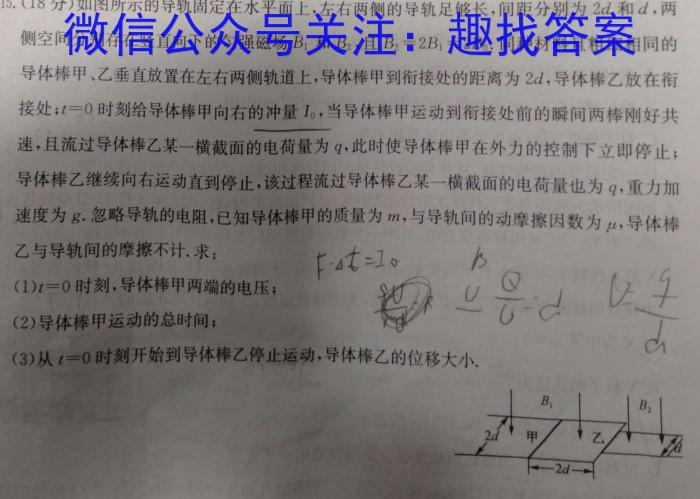 15.(18分)如图所示的导轨固定在水平面上,左右两侧的导轨足够长,间距分别为2d和d,两
微信公众号关注:趣找答案
侧空间
导体棒甲、乙垂直放置在左右两侧轨道上,导体棒甲到衔接处的距离为2d,导体棒乙放在衔
接处;t=0时刻给导体棒甲向右的冲量I₀,当导体棒甲运动到衔接处前的瞬间两棒刚好共
速,且流过导体棒乙某一横截面的电荷量为q,此时使导体棒甲在外力的控制下立即停止;
导体棒乙继续向右运动直到停止,该过程流过导体棒乙某一横截面的电荷量也为q,重力加
速度为g.忽略导轨的电阻,已知导体棒甲的质量为m,与导轨间的动摩擦因数为μ,导体棒
乙与导轨间的摩擦不计.求:
(1)t=0时刻,导体棒甲两端的电压;
(2)导体棒甲运动的总时间;
(3)从t=0时刻开始到导体棒乙停止运动,导体棒乙的位移大小.
F·Δt=I₀
B₁
B₂
2d
甲
乙
d
2d